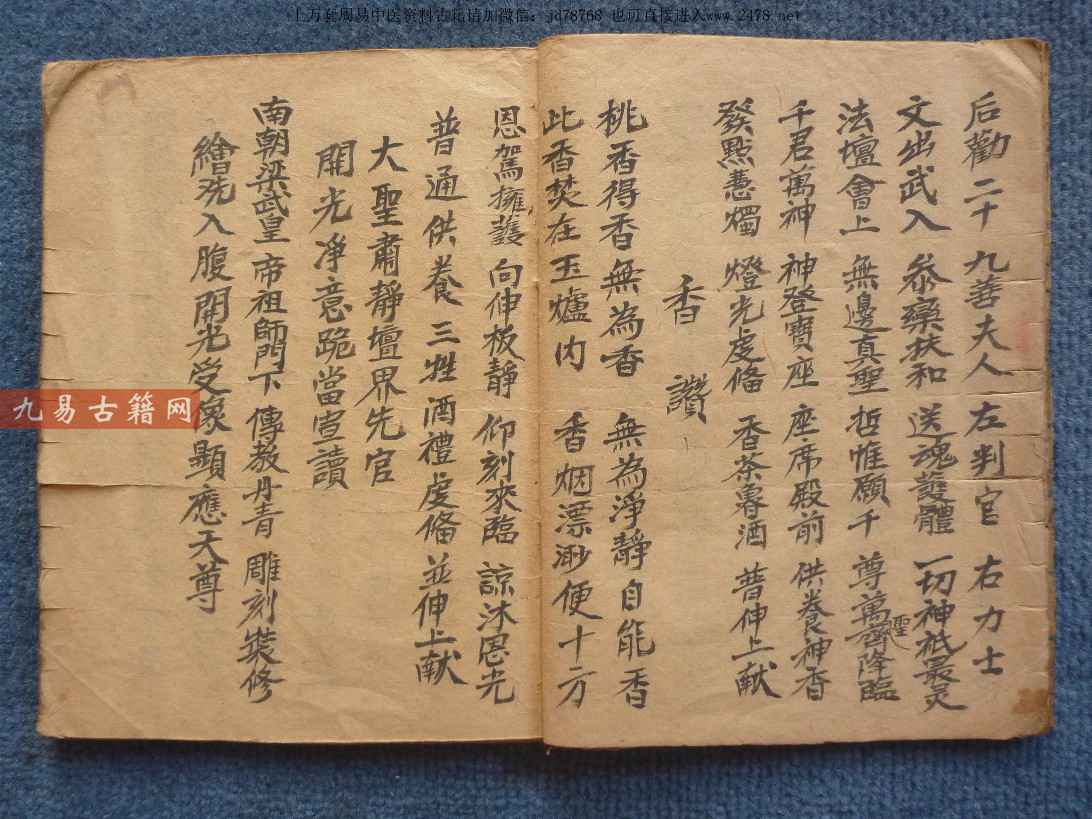 十万套周易中医资料古籍请加微信：jd78768 也可直接进入www.2478.net
后勸二十九善夫人 左判官 右力士
文出武入 參藥扶和 送魂護體 一切神祇最灵
法壇會上 無邊真聖 哲惟願千尊萬聖降臨
千君萬神 神登寶座 座席殿前 供養神香
發點蕙燭 燈光虔俻 香茶專酒 普伸上献
香讚
桃香得香無為香 無為淨靜自能香
此香焚在玉爐内 香烟漂渺便十方
恩駕擁護 向伸板靜 仰刻來臨 諒沐恩光
普通供養 三牲酒禮虔俻 並伸上献
大聖肅靜壇界先官
開光净意跪當宣讀
南朝梁武皇帝祖師門下傳教丹青 雕刻裝修
繪洗入腹開光受象顯應天尊
九易古籍网